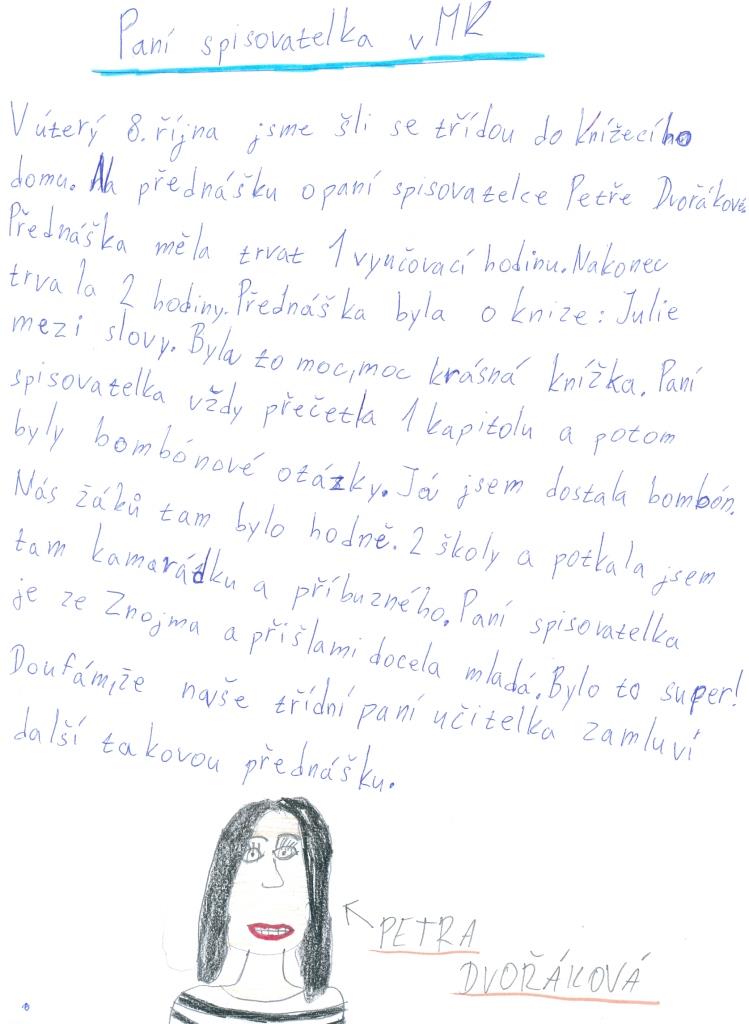 Paní spisovatelka v MK
V úterý 8. října jsme šli se třídou do Knížecího
domu. Na přednášku o paní spisovatelce Petře Dvořákové.
Přednáška měla trvat 1 vyučovací hodinu. Nakonec
trvala 2 hodiny. Přednáška byla o knize: Julie
mezi slovy. Byla to moc, moc krásná knížka. Paní
spisovatelka vždy přečetla 1 kapitolu a potom
byly bombónové otázky. Já jsem dostala bombón.
Nás žáků tam bylo hodně. 2 školy a potkala jsem
tam kamarádku a příbuzného. Paní spisovatelka
je ze Znojma a přišla mi docela mladá. Bylo to super!
Doufám, že naše třídní paní učitelka zamluví
další takovou přednášku.
PETRA
DVOŘÁKOVÁ